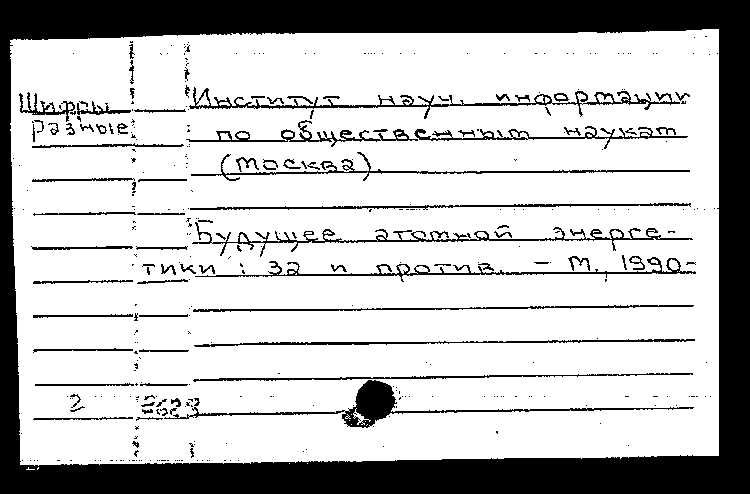 Шифры
разные
Институт науч. информации
по общественным наукам
(Москва).
Будущее атомной энерге-
тики : за и против. – М., 1990-
2